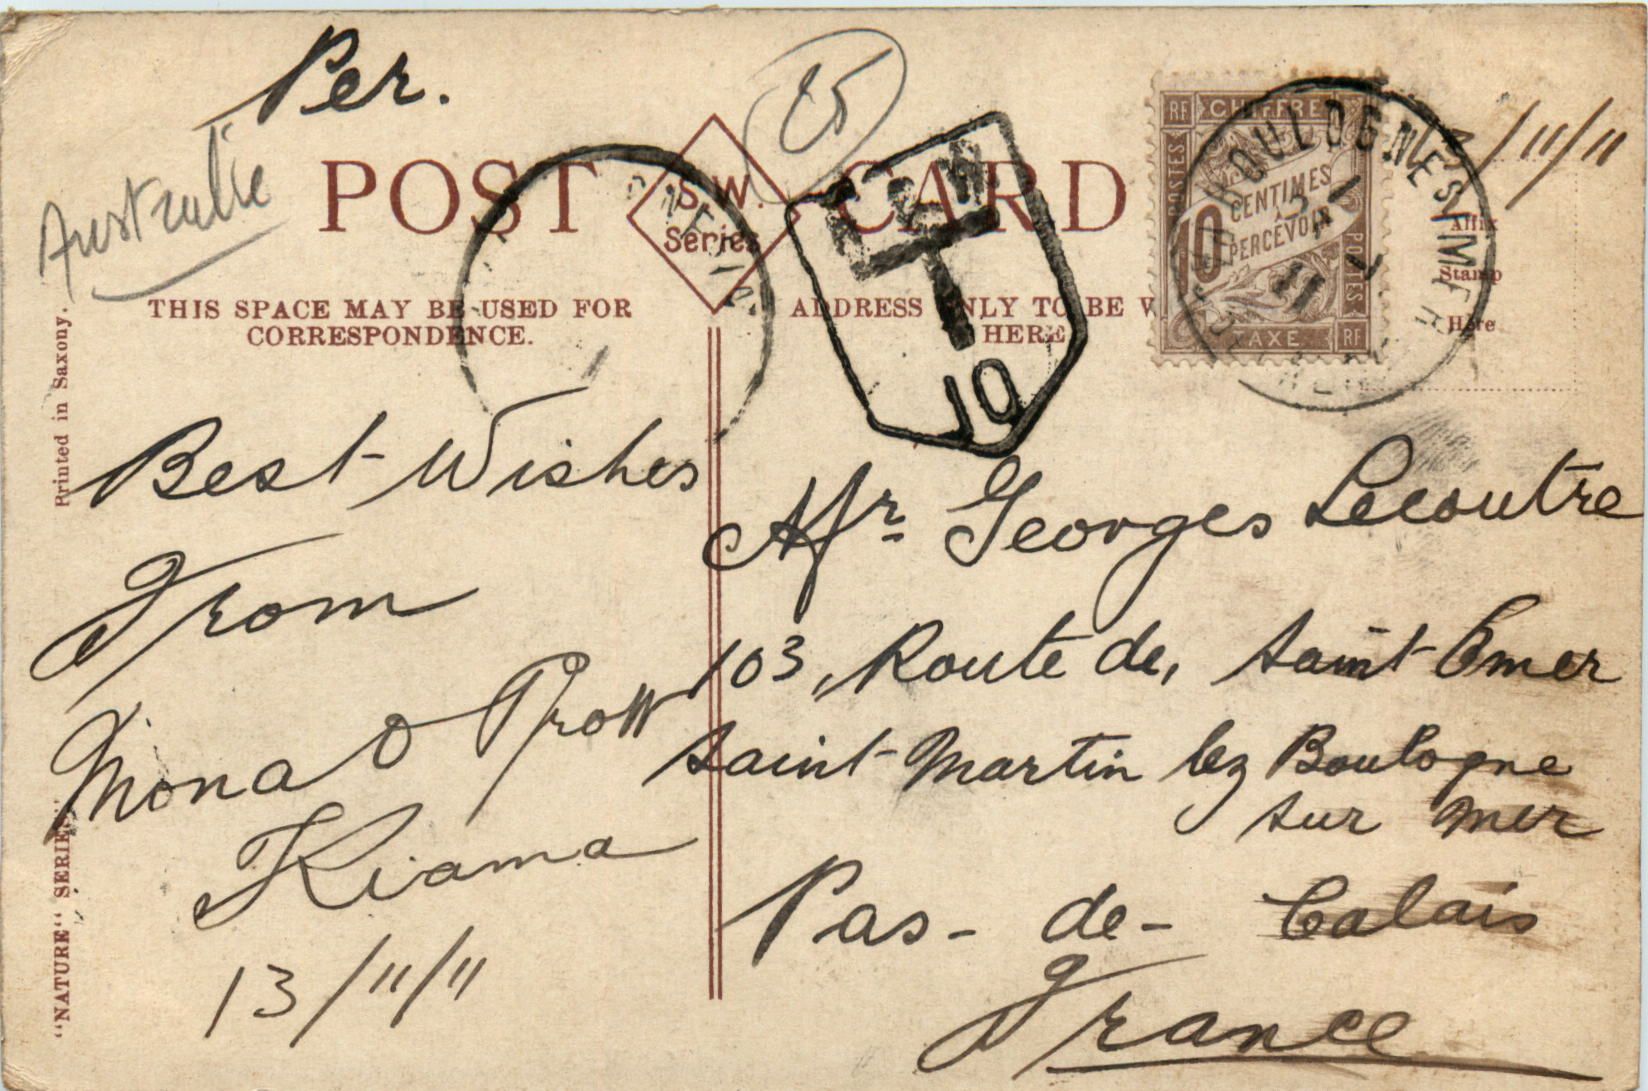 Per.
Australie
25
/11/11
POST CARD
S.W.
Series
THIS SPACE MAY BE USED FOR
CORRESPONDENCE.
ADDRESS ONLY TO BE
HERE
Affix
Stamp
Here
N.S.W
T
10
RF CHIFFRE
POSTES
10 CENTIMES
À
PERCEVOIR
POSTES
TAXE RF
BOULOGNE S MER
Printed in Saxony.
"NATURE" SERIES.
Best Wishes
From
Mona O Prott
Kiama
13/11/11
Mr Georges Lecoutre
103, Route de, Saint Omer
Saint-Martin lez Boulogne
sur mer
Pas-de-Calais
France